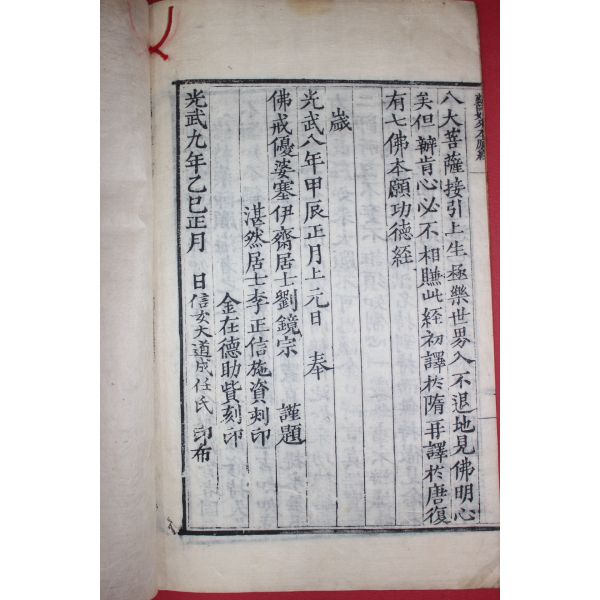 八大菩薩接引上生極樂世界入不退地見佛明心
矣但辦肯心必不相賺此経初譯扵隋再譯扵唐復
有七佛本願功德経
歲
光武八年甲辰正月上元日 奉
佛戒優婆塞伊齋居士劉鏡宗 謹題
湛然居士李正信施資刻印
金在德助貲刻印
光武九年乙巳正月 日信女大道成任氏 印布